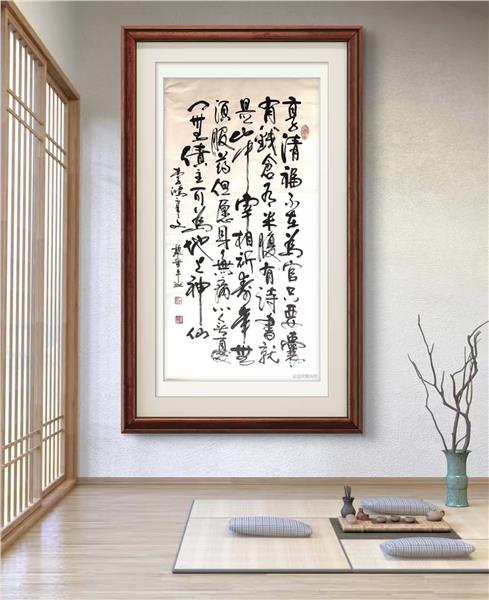 享清福不在為官只要囊
有錢倉有米腹有詩書就
是山中宰相祈寿年無
須服药但愿身無病心無憂
门無債主可為地上神仙
李鴻章文